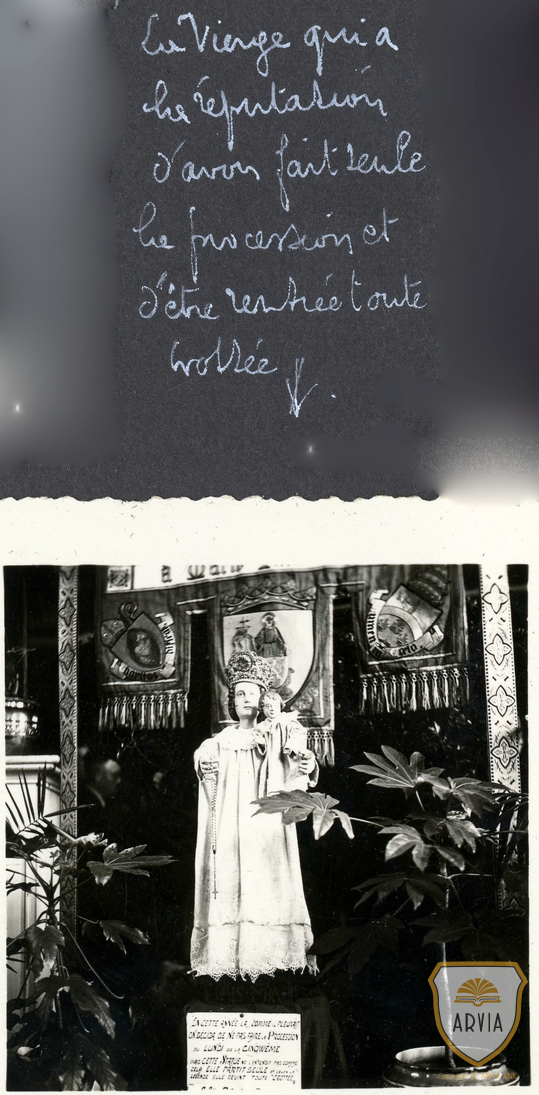 La Vierge qui a
la réputation
d'avoir fait seule
la procession et
d'être rentrée toute
crottée
EN CETTE ANNÉE-LA, COMME IL PLEUVAIT
ON DÉCIDA DE NE PAS FAIRE LA PROCESSION
DU LUNDI DE LA CINQUÈME
MAIS CETTE STATUE NE L'ENTENDIT PAS COMME
CELA ELLE PARTIT SEULE ET SELON LA
LÉGENDE ELLE REVINT TOUTE CROTTÉE
ARVIA